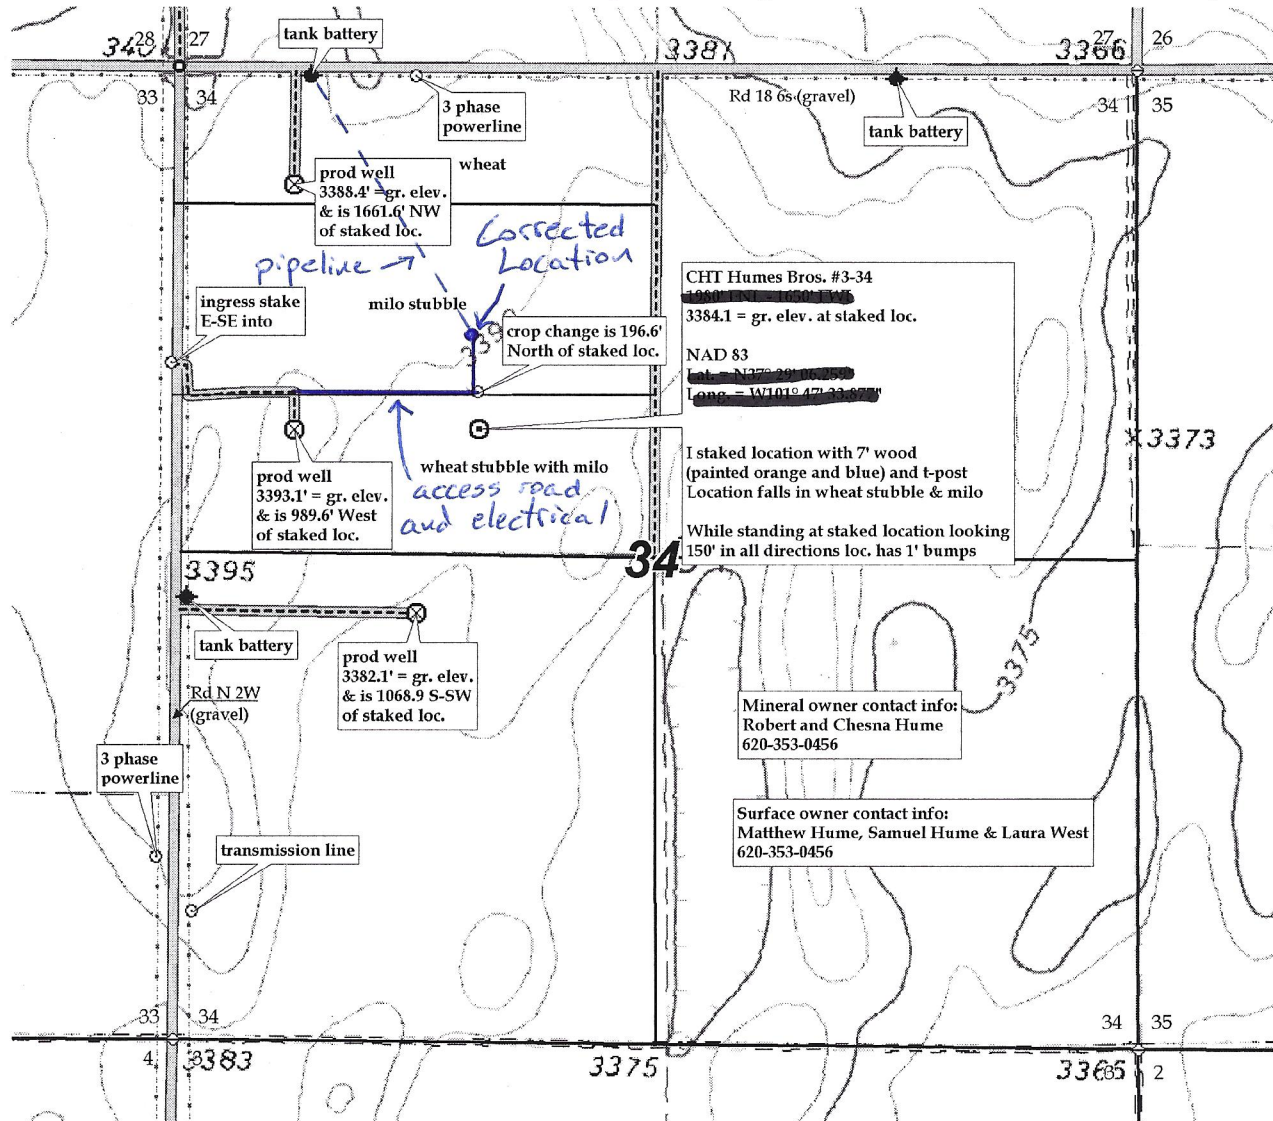 28
27
tank battery
3381
27
26
3366
33
34
3 phase
powerline
Rd 18 6s (gravel)
34
35
tank battery
wheat
prod well
3388.4' = gr. elev.
& is 1661.6' NW
of staked loc.
Corrected
Location
pipeline
ingress stake
E-SE into
milo stubble
crop change is 196.6'
North of staked loc.
CHT Humes Bros. #3-34
1980' FNL - 1650' FWL
3384.1 = gr. elev. at staked loc.
NAD 83
Lat. = N37° 29' 06.259"
Long. = W101° 47' 33.877"
3373
I staked location with 7' wood
(painted orange and blue) and t-post
Location falls in wheat stubble & milo
While standing at staked location looking
150' in all directions loc. has 1' bumps
prod well
3393.1' = gr. elev.
& is 989.6' West
of staked loc.
wheat stubble with milo
access road
and electrical
34
3395
tank battery
prod well
3382.1' = gr. elev.
& is 1068.9 S-SW
of staked loc.
3375
Rd N 2W
(gravel)
Mineral owner contact info:
Robert and Chesna Hume
620-353-0456
3 phase
powerline
Surface owner contact info:
Matthew Hume, Samuel Hume & Laura West
620-353-0456
transmission line
33
34
34
35
4
3383
3375
2